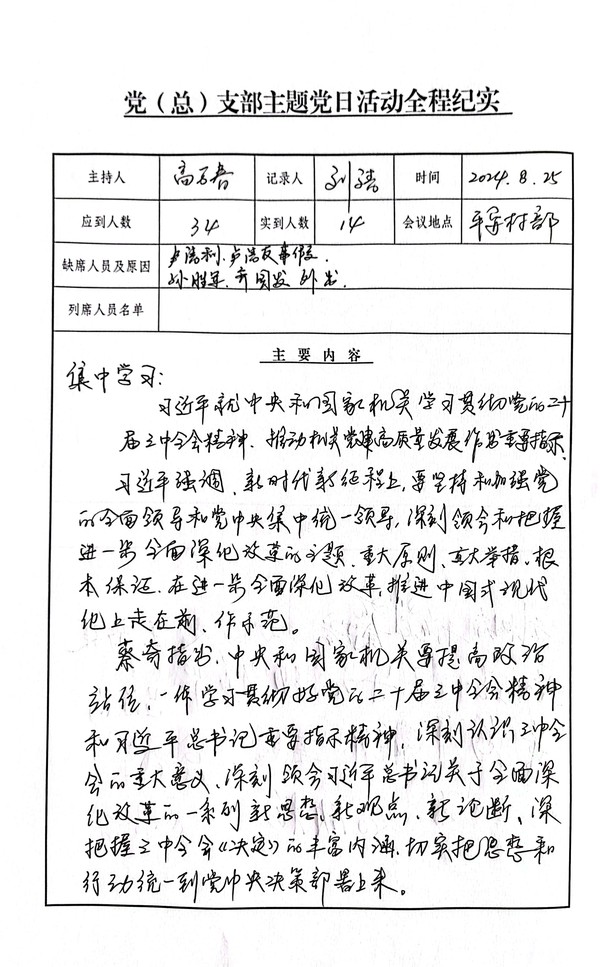 党（总）支部主题党日活动全程纪实
主持人 高万春 记录人 刘 时间 2024.8.25
应到人数 34 实到人数 14 会议地点 平安村部
缺席人员及原因 卢浩利、卢浩友事假、
孙胜军、 国发 外出、
列席人员名单
主要内容
集中学习：
习近平就中央和国家机关学习贯彻党的二十
届三中全会精神、推动机关党建高质量发展作出重要指示
习近平强调、新时代新征程上，要坚持和加强党
的全面领导和党中央集中统一领导，深刻领会和把握
进一步全面深化改革的主题、重大原则、重大举措、根
本保证、在进一步全面深化改革，推进中国式现代
化上走在前、作示范。
蔡奇指出、中央和国家机关要提高政治
站位、一体学习贯彻好党的二十届三中全会精神
和习近平总书记重要指示精神、深刻认识三中全
会的重大意义、深刻领会习近平总书记关于全面深
化改革的一系列新思想、新观点、新论断、深
把握三中全会《决定》的丰富内涵、切实把思想和
行动统一到党中央决策部署上来。